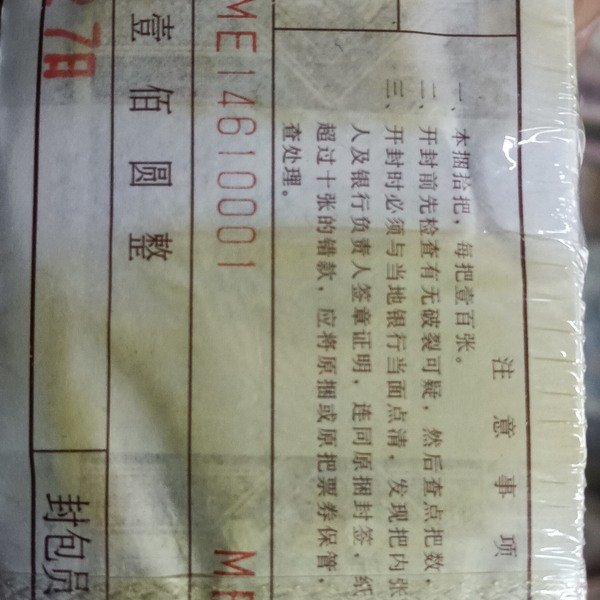 注意事项
一、本捆拾把，每把壹百张。
二、开封前先检查有无破裂可疑，然后查点把数，
三、开封时必须与当地银行当面点清，发现把内张
人及银行负责人签章证明，连同原捆封签，纸
超过十张的错款，应将原捆或原把票券保管，
查处理。
ME14610001 M
壹佰圆整
7日 封包员